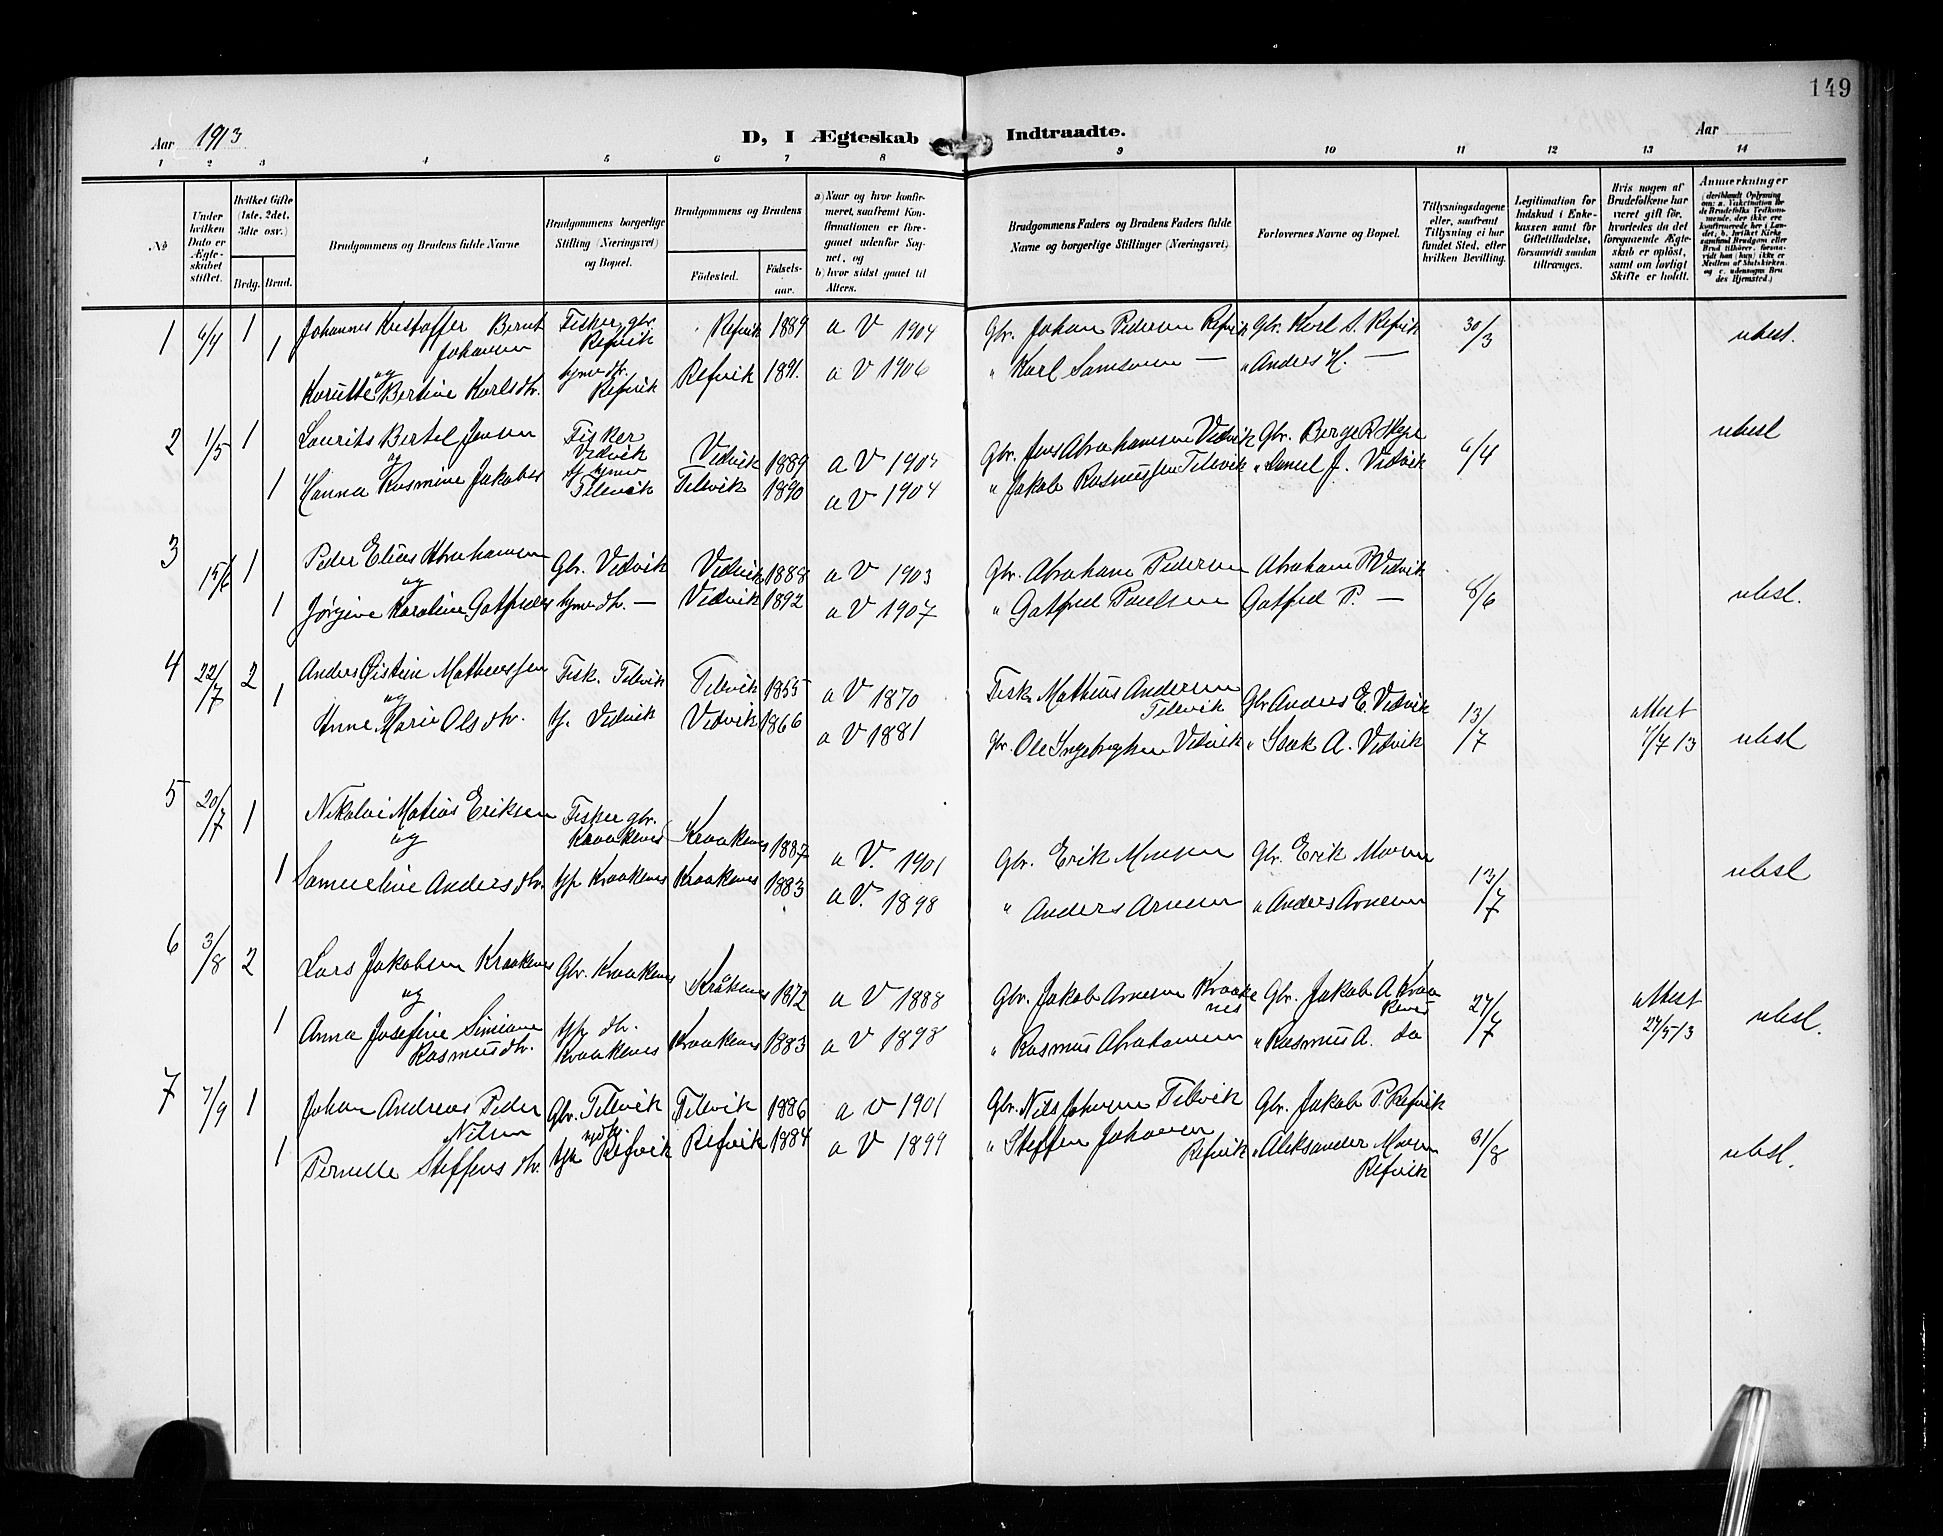 149
Aar 1913.
D, I Ægteskab Indtraadte.
Aar
1 2 3 4 5 6 7 8 9 10 11 12 13 14
No
Under hvilken Dato er Ægteskabet stiftet.
Hvilket Gifte (1ste, 2det, 3dte osv.)
Brdg. Brud.
Brudgommens og Brudens fulde Navne
Brudgommens borgerlige Stilling (Næringsvei) og Bopæl.
Brudgommens og Brudens
Födested. Födselsaar.
a) Naar og hvor konfirmeret, saafremt Konfirmationen er foregaaet udenfor Sognet, og
b) hvor sidst gaaet til Alters.
Brudgommens Faders og Brudens Faders fulde Navne og borgerlige Stillinger (Næringsvei)
Forlovernes Navne og Bopæl.
Tillysningsdagene eller, saafremt Tillysning ei har fundet Sted, efter hvilken Bevilling.
Legitimation for Indskud i Enkekassen samt for Giftetilladelse, forsaavidt saadan tiltrænges.
Hvis nogen af Brudefolkene har været gift för, hvorledes da det foregaaende Ægteskab er oplöst, samt om lovligt Skifte er holdt.
Anmærkninger
1 6/4 1 Johannes Kristoffer Bernt Fisker, gbr. Refvik 1889 a V 1904 Gbr. Johan Pedersen Refvik Gbr. Karl S. Refvik 30/3 ubesl.
Johansen Refvik
og
1 Karutte Bertine Karlsdtr. Refvik Refvik 1891. a V 1906 " Karl Samsonsen — " Anders H. —
2 1/5 1 Laurits Bertel Jensen Fisker Vedvik Vedvik 1889 a V 1904 Gbr. Jens Abrahamsen Vedvik Gbr. Børge R. Skye 6/4 ubesl
og
1 Hanna Rasmine Jakobs Tilevik Tilevik 1890 a V 1904 " Jakob Rasmussen Tilevik " Daniel J. Vedvik
3 15/6 1 Peder Elias Abrahamsen Gbr. Vedvik Vedvik 1888 a V 1903 Gbr. Abraham Pedersen Abraham P. Vedvik 8/6 ubesl.
og
1 Jørgine Karoline Gotfreds — Vedvik 1892 a V 1907 " Gotfred Paulsen Gotfred P. —
4 22/7 2 Anders Øistein Mathiassen Fisk. Tilevik Tilevik 1855 a V 1870 Fisk. Mathias Andersen Tilevik Gbr Anders E. Vedvik 13/7 attest 1/7 13 ubesl
og
1 Anne Marie Olsdtr. Vedvik Vedvik 1866 a V 1881 Gbr. Ole Ingebrigtsen Vedvik " Isak A. Vedvik
5 20/7 1 Nikolai Matias Eriksen Fisker gbr. Kraakenes Kraakenes 1887 a V. 1901 Gbr. Erik Monsen Gbr. Erik Monsen 13/7 ubesl
og
1 Samueline Andersdtr. Kraakenes Kraakenes 1883 a V. 1898 " Anders Arnesen " Anders Arnesen
6 3/8 2 Lars Jakobsen Kraakenes Gbr. Kraakenes Kråkenes 1872 a V 1888 Gbr. Jakob Arnesen Kraakenes Gbr. Jakob A Kraakenes 27/7 attest 27/5 13 ubesl.
og
1 Anna Josefine Simiane Rasmusdtr. dtr. Kraakenes Kraakenes 1883 a V 1898 " Rasmus Abrahamsen " Rasmus A. do
7 7/9 1 Johan Andreas Peder Nilsen Gbr. Tilevik Tilevik 1886 a V 1901 Gbr. Nils Johansen Tilevik Gbr. Jakob P. Refvik 31/8 ubesl.
1 Pernelle Steffensdtr Refvik Refvik 1884 a V 1899 " Steffen Johansen Refvik " Aleksander Monsen Refvik